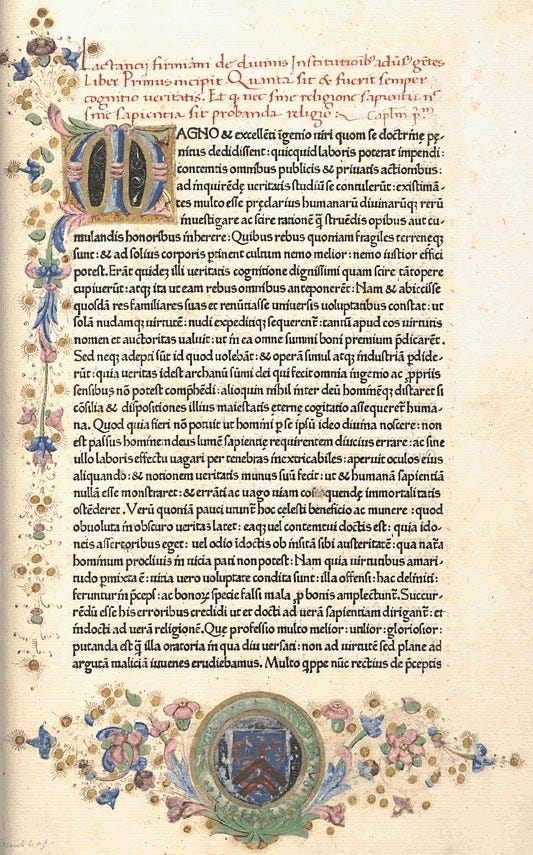 Lactancii firmiani de diuinis Institutioıb᷒ aduſ᷒ gētes
Liber Primus incipit Quanta sit & fuerit semper
cognitio ueritatis. Et q̃ nec sine religione sapientia nec̄
sine sapientia sit probanda religio Caplm̄ pm̄
MAGNO & excellēti īgenio uiri quom se doctrinę pę-
nitus dedidissent: quicquid laboris poterat impendi:
contemtis omnibus publicis & priuatis actionibus:
ad inquirēdę ueritatis studiū se contulerūt: existimā-
tes multo esse pręclarius humanarū diuinarūq; rerū
inuestigare ac scire rationē q̄ struēdis opibus aut cu-
mulandis honoribus inherere: Quibus rebus quoniam fragiles terreneq;
sunt: & ad solius corporis ꝑtinent cultum nemo melior: nemo iustior effici
potest. Erāt quidez illi ueritatis cognitione dignissimi quam scire tātopere
cupiuerūt: atq; ita ut eam rebus omnibus anteponerēt: Nam & abiecisse
quosdā res familiares suas et renūtiasse uniuersis uoluptatibus constat: ut
solā nudamq; uirtutē: nudi expeditiq; sequerent̃: tantū apud eos uirtutis
nomen et auctoritas ualuit: ut in ea omne summi boni premium p̄dicarēt.
Sed neq; adepti sūt id quod uolebāt: & operā simul atq; industriā ꝑdide-
rūt: quia ueritas idest archanū sūmi dei qui fecit omnia ingenio ac ꝓpriis
sensibus nō potest comp̄hēdi: alioquin nihil inter deū hominēq; distaret si
cōsilia & dispositiones illius maiestatis eternę cogitatio assequeret̃ huma-
na. Quod quia fieri nō potuit ut homini ꝑ se ipsū ideo diuina nosceret: non
est passus hominem deus lumē sapientię requirentem diucius errare: ac sine
ullo laboris effectu uagari per tenebras inextricabiles: aperuit oculos eius
aliquando: & notionem ueritatis munus suū fecit: ut & humanā sapientiā
nullā esse monstraret: & errāti ac uago uiam cōsequendę immortalitatis
ostēderet. Verū quoniā pauci utunt̃ hoc celesti beneficio ac munere: quod
obuoluta in obscuro ueritas latet: eaq; uel contemtui doctis est: quia ido-
neis assertoribus eget: uel odio īdoctis ob īnsitā sibi austeritatē: qua natã
hominum procliuis in uicia pati non potest: Nam quia uirtutibus amari-
tudo ꝑmixta ē: uicia uero uoluptate condita sunt: illa offensi: hac deliniti:
feruntur in p̄ceps: ac bonoꝝ specie falsi mala ꝓ bonis amplectunt̃. Succur-
rēdū esse his erroribus credidi ut et docti ad uerā sapientiam dirigant̃: et
indocti ad uerā religionē. Quę professio multo melior: utilior: gloriosior:
putanda est q̄ illa oratoria in qua diu uersati: non ad uirtutē sed plane ad
argutā maliciā iuuenes erudiebamus. Multo q̄ppe nūc rectius de p̄ceptis